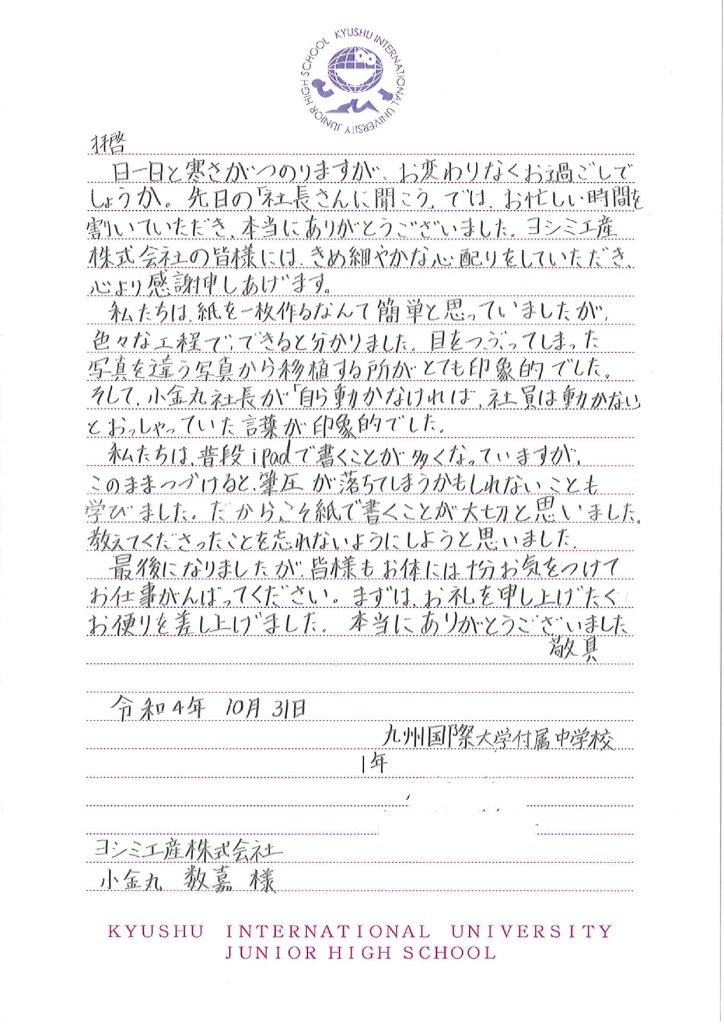 KYUSHU INTERNATIONAL UNIVERSITY JUNIOR HIGH SCHOOL
拝啓
日一日と寒さがつのりますが、お変わりなくお過ごしで
しょうか。先日の「社長さんに聞こう」では、お忙しい時間を
割いていただき、本当にありがとうございました。ヨシミ工産
株式会社の皆様には、きめ細やかな心配りをしていただき、
心より感謝申しあげます。
私たちは、紙を一枚作るなんて簡単と思っていましたが、
色々な工程で、できると分かりました。目をつぶってしまった
写真を違う写真から移植する所がとても印象的でした。
そして、小金丸社長が「自ら動かなければ、社員は動かない
とおっしゃっていた言葉が印象的でした。
私たちは、普段ipadで書くことが多くなっていますが、
このままつづけると、筆圧が落ちてしまうかもしれないことも
学びました。だからこそ紙で書くことが大切と思いました。
教えてくださったことを忘れないようにしようと思いました。
最後になりましたが、皆様もお体には十分お気をつけて
お仕事がんばってください。まずは、お礼を申し上げたく
お便りを差し上げました。本当にありがとうございました
敬具
令和4年 10月31日
九州国際大学付属中学校
1年
ヨシミ工産株式会社
小金丸 数嘉 様
KYUSHU INTERNATIONAL UNIVERSITY
JUNIOR HIGH SCHOOL